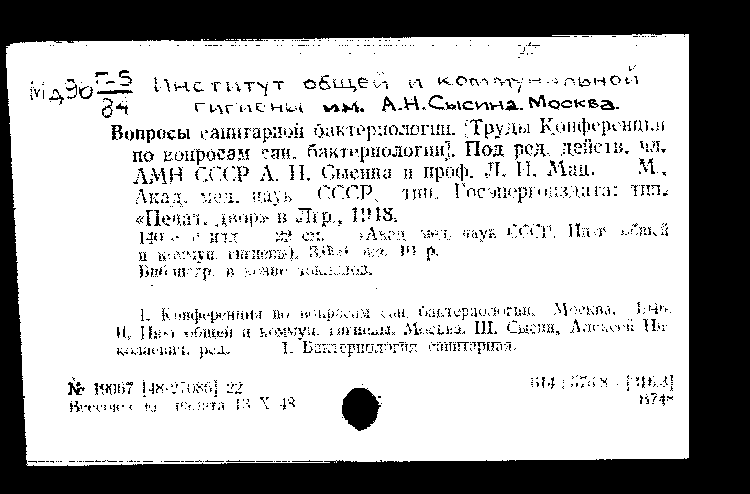 Г-5
МД90 84
Институт общей и коммунальной
гигиены им. А.Н.Сысина. Москва.
Вопросы санитарной бактериологии. [Труды Конференции
по вопросам сан. бактериологии]. Под ред. действ. чл.
АМН СССР А. Н. Сысина и проф. Л. И. Мац. М.,
Акад. мед. наук СССР, тип. Госэнергоиздата: тип.
«Печат. двор» в Лгр., 1948.
22 см. (Акад. мед. наук СССР. Ин-т общей
и коммун. гигиены). 10 р.
Библиогр. в конце докладов.
I. Конференция по вопросам сан. бактериологии. Москва.
II. Ин-т общей и коммун. гигиены. Москва. III. Сысин, Алексей Ни-
колаевич, ред. 1. Бактериология санитарная.
№ 19067 [48-27086] 22
палата 13 X 48